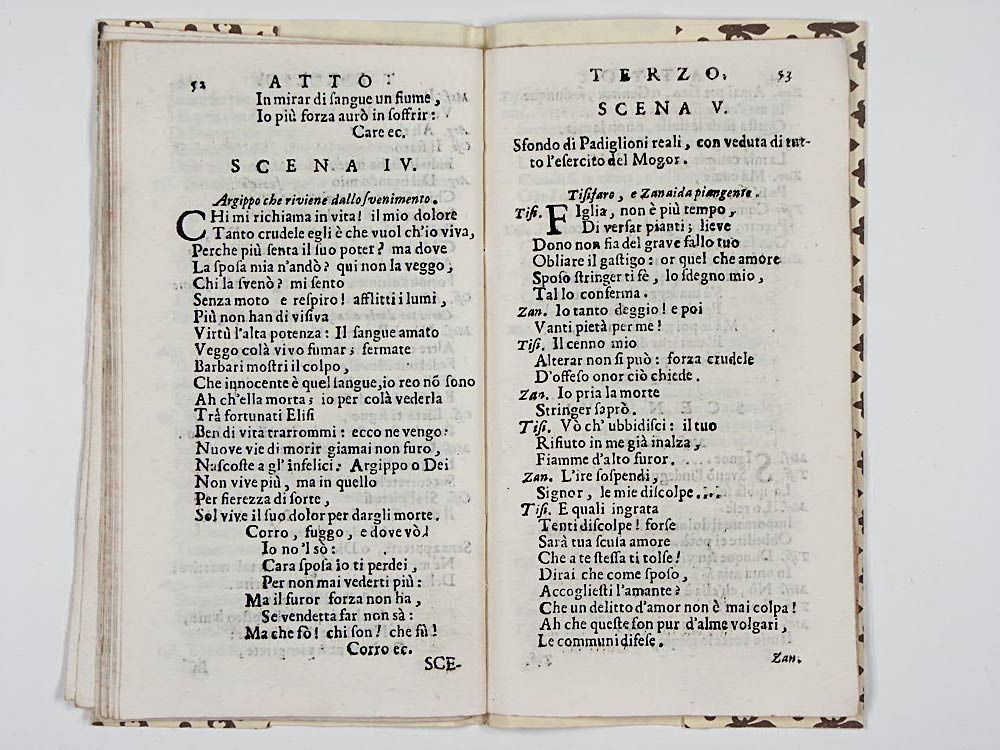 52 ATTO
In mirar di ſangue un fiume,
Io più forza aurò in ſoffrir:
Care ec.
SCENA IV.
Argippo che riviene dallo ſvenimento.
CHi mi richiama in vita! il mio dolore
Tanto crudele egli è che vuol ch'io viva,
Perche più ſenta il ſuo poter? ma dove
La ſpoſa mia n'andò? qui non la veggo;
Chi la ſvenò? mi ſento
Senza moto e reſpiro! afflitti i lumi,
Più non han di viſiva
Virtù l'alta potenza: Il ſangue amato
Veggo colà vivo fumar; fermate
Barbari moſtri il colpo,
Che innocente è quel ſangue, io reo nõ ſono
Ah ch'ella morta; io per colà vederla
Trà fortunati Eliſi
Ben di vita trarrommi: ecco ne vengo:
Nuove vie di morir giamai non furo,
Naſcoſte a gl'infelici: Argippo o Dei
Non vive più, ma in quello
Per fierezza di ſorte,
Sol vive il ſuo dolor per dargli morte.
Corro, fuggo, e dove vò!
Io no'l sò:
Cara ſpoſa io ti perdei,
Per non mai vederti più:
Ma il furor forza non ha,
Se vendetta far non sà:
Ma che fò! chi ſon! che fù!
Corro ec.
SCE-
TERZO. 53
SCENA V.
Sfondo di Padiglioni reali, con veduta di tut-
to l'eſercito del Mogor.
Tiſifaro, e Zanaida piangente.
Tiſi. FIglia, non è più tempo,
Di verſar pianti; lieve
Dono non fia del grave fallo tuo
Obliare il gaſtigo: or quel che amore
Spoſo ſtringer ti fè, lo ſdegno mio,
Tal lo conferma.
Zan. Io tanto deggio! e poi
Vanti pietà per me!
Tiſi. Il cenno mio
Alterar non ſi può: forza crudele
D'offeſo onor ciò chiede.
Zan. Io pria la morte
Stringer ſaprò.
Tiſi. Vò ch' ubbidiſci: il tuo
Rifiuto in me già inalza,
Fiamme d'alto furor.
Zan. L'ire ſoſpendi,
Signor, le mie diſcolpe....
Tiſi. E quali ingrata
Tenti diſcolpe! forſe
Sarà tua ſcuſa amore
Che a te ſteſſa ti tolſe!
Dirai che come ſpoſo,
Accogliesti l'amante?
Che un delitto d'amor non è mai colpa!
Ah che queſte ſon pur d'alme volgari,
Le communi difeſe.
Zan.